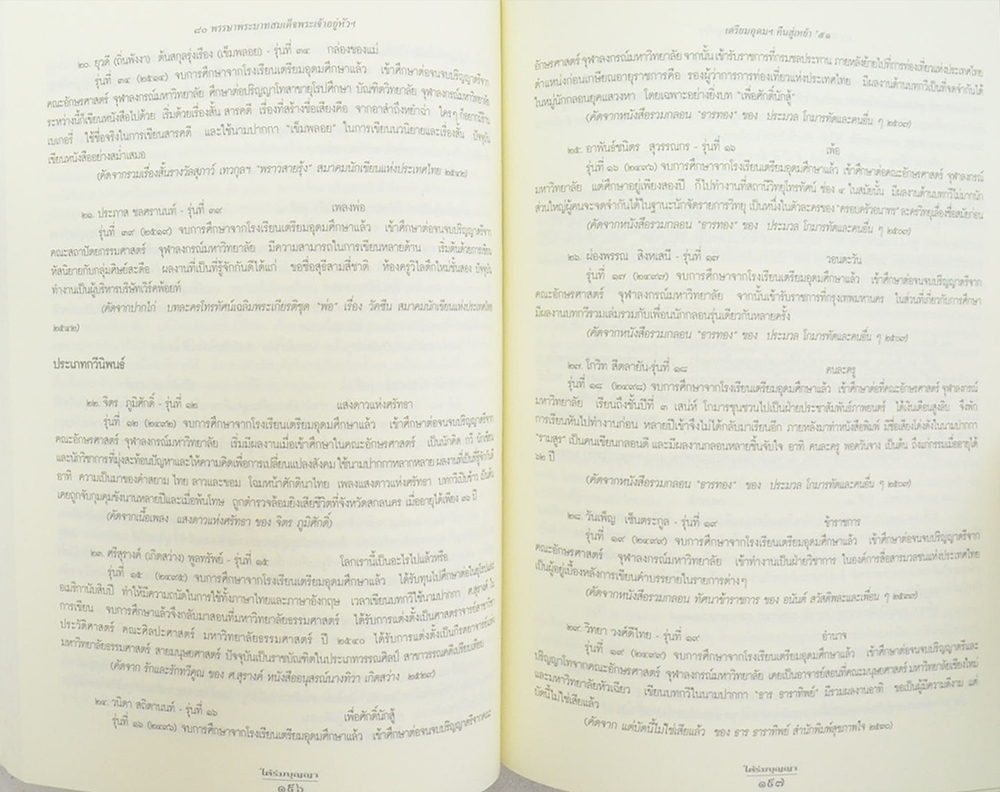 ๘๐ พรรษาพระบาทสมเด็จพระเจ้าอยู่หัวฯ
๒๐. ยุวดี (ถิ่นพังงา) ต้นสกุลรุ่งเรือง (เข็มพลอย) - รุ่นที่ ๓๔ กล่องของแม่
รุ่นที่ ๓๔ (๒๕๑๔) จบการศึกษาจากโรงเรียนเตรียมอุดมศึกษาแล้ว เข้าศึกษาต่อจนจบปริญญาตรีจาก
คณะอักษรศาสตร์ จุฬาลงกรณ์มหาวิทยาลัย ศึกษาต่อปริญญาโทสาขายุโรปศึกษา บัณฑิตวิทยาลัย จุฬาลงกรณ์มหาวิทยาลัย
ระหว่างนี้ก็เขียนหนังสือไปด้วย เริ่มด้วยเรื่องสั้น สารคดี เรื่องที่สร้างชื่อเสียงคือ จากอาสำถึงหยำฉ่า ใครๆ ก็อยากมีร้าน
เบเกอรี่ ใช้ชื่อจริงในการเขียนสารคดี และใช้นามปากกา "เข็มพลอย" ในการเขียนนวนิยายและเรื่องสั้น ปัจจุบัน
เขียนหนังสืออย่างสม่ำเสมอ
(คัดจากรวมเรื่องสั้นรางวัลสุภาว์ เทวกุลฯ "พราวสายรุ้ง" สมาคมนักเขียนแห่งประเทศไทย ๒๕๔๒)
๒๑. ประภาส ชลศรานนท์ - รุ่นที่ ๓๙ เพลงพ่อ
รุ่นที่ ๓๙ (๒๕๑๙) จบการศึกษาจากโรงเรียนเตรียมอุดมศึกษาแล้ว เข้าศึกษาต่อจนจบปริญญาตรีจาก
คณะสถาปัตยกรรมศาสตร์ จุฬาลงกรณ์มหาวิทยาลัย มีความสามารถในการเขียนหลายด้าน เริ่มต้นด้วยการเขียน
หัสนิยายกับกลุ่มศิษย์สะดือ ผลงานที่เป็นที่รู้จักกันดีได้แก่ ขอชื่อสุธีสามสี่ชาติ ห้องครูวิไลตึกใหม่ชั้นสอง ปัจจุบัน
ทำงานเป็นผู้บริหารบริษัทเวิร์คพ้อยท์
(คัดจากปากไก่ บทละครโทรทัศน์เฉลิมพระเกียรติชุด "พ่อ" เรื่อง วัคซีน สมาคมนักเขียนแห่งประเทศไทย
๒๕๔๒)
ประเภทกวีนิพนธ์
๒๒. จิตร ภูมิศักดิ์ - รุ่นที่ ๑๒ แสงดาวแห่งศรัทธา
รุ่นที่ ๑๒ (๒๔๙๒) จบการศึกษาจากโรงเรียนเตรียมอุดมศึกษาแล้ว เข้าศึกษาต่อจนจบปริญญาตรีจาก
คณะอักษรศาสตร์ จุฬาลงกรณ์มหาวิทยาลัย เริ่มมีผลงานเมื่อเข้าศึกษาในคณะอักษรศาสตร์ เป็นนักคิด กวี นักเขียน
และนักวิชาการที่มุ่งสะท้อนปัญหาและให้ความคิดเพื่อการเปลี่ยนแปลงสังคม ใช้นามปากกาหลากหลาย ผลงานที่เป็นที่รู้จักกันดี
อาทิ ความเป็นมาของคำสยาม ไทย ลาวและขอม โฉมหน้าศักดินาไทย เพลงแสงดาวแห่งศรัทธา บทกวีเปิบข้าว เป็นต้น
เคยถูกจับกุมคุมขังนานหลายปีและเมื่อพ้นโทษ ถูกตำรวจล้อมยิงเสียชีวิตที่จังหวัดสกลนคร เมื่ออายุได้เพียง ๓๖ ปี
(คัดจากเนื้อเพลง แสงดาวแห่งศรัทธา ของ จิตร ภูมิศักดิ์)
๒๓. ศรีสุรางค์ (เกิดสว่าง) พูลทรัพย์ - รุ่นที่ ๑๕ โลกเรานี้เป็นอะไรไปแล้วหรือ
รุ่นที่ ๑๕ (๒๔๙๕) จบการศึกษาจากโรงเรียนเตรียมอุดมศึกษาแล้ว ได้รับทุนไปศึกษาต่อในยุโรปและ
อเมริกานับสิบปี ทำให้มีความถนัดในการใช้ทั้งภาษาไทยและภาษาอังกฤษ เวลาเขียนบทกวีใช้นามปากกา ศ.สุรางค์ ใน
การเขียน จบการศึกษาแล้วจึงกลับมาสอนที่มหาวิทยาลัยธรรมศาสตร์ ได้รับการแต่งตั้งเป็นศาสตราจารย์สาขาวิชา
ประวัติศาสตร์ คณะศิลปะศาสตร์ มหาวิทยาลัยธรรมศาสตร์ ปี ๒๕๔๐ ได้รับการแต่งตั้งเป็นกีรตยาจารย์แห่ง
มหาวิทยาลัยธรรมศาสตร์ สายมนุษยศาสตร์ ปัจจุบันเป็นราชบัณฑิตในประเภทวรรณศิลป์ สาขาวรรณคดีเปรียบเทียบ
(คัดจาก รักและรักทวีคูณ ของ ศ.สุรางค์ หนังสืออนุสรณ์นางทิวา เกิดสว่าง ๒๕๒๙)
๒๔. วนิดา สถิตานนท์ - รุ่นที่ ๑๖ เพื่อศักดิ์นักสู้
รุ่นที่ ๑๖ (๒๔๙๖) จบการศึกษาจากโรงเรียนเตรียมอุดมศึกษาแล้ว เข้าศึกษาต่อจนจบปริญญาตรีจากคณะ
ใต้ร่มบุญญา
๑๕๖
เตรียมอุดมฯ คืนสู่เหย้า '๕๑
อักษรศาสตร์ จุฬาลงกรณ์มหาวิทยาลัย จากนั้น เข้ารับราชการที่กรมชลประทาน ภายหลังย้ายไปที่การท่องเที่ยวแห่งประเทศไทย
ตำแหน่งก่อนเกษียณอายุราชการคือ รองผู้ว่าการการท่องเที่ยวแห่งประเทศไทย มีผลงานด้านบทกวีเป็นที่จดจำกันได้
ในหมู่นักกลอนยุคแสวงหา โดยเฉพาะอย่างยิ่งบท "เพื่อศักดิ์นักสู้"
(คัดจากหนังสือรวมกลอน "ธารทอง" ของ ประมวล โกมารทัตและคนอื่น ๆ ๒๕๐๓)
๒๕. อาพันธ์ชนิตร สุวรรณกร - รุ่นที่ ๑๖ เพ้อ
รุ่นที่ ๑๖ (๒๔๙๖) จบการศึกษาจากโรงเรียนเตรียมอุดมศึกษาแล้ว เข้าศึกษาต่อคณะอักษรศาสตร์ จุฬาลงกรณ์
มหาวิทยาลัย แต่ศึกษาอยู่เพียงสองปี ก็ไปทำงานที่สถานีวิทยุโทรทัศน์ ช่อง ๔ ในสมัยนั้น มีผลงานด้านบทกวีไม่มากนัก
ส่วนใหญ่ผู้คนจะจดจำกันได้ในฐานะนักจัดรายการวิทยุ เป็นหนึ่งในตัวละครของ "ครอบครัวอนาทร" ละครวิทยุเลื่องชื่อสมัยก่อน
(คัดจากหนังสือรวมกลอน "ธารทอง" ของ ประมวล โกมารทัตและคนอื่น ๆ ๒๕๐๓)
๒๖. ผ่องพรรณ สิงหเสนี - รุ่นที่ ๑๗ วอนตะวัน
รุ่นที่ ๑๗ (๒๔๙๗) จบการศึกษาจากโรงเรียนเตรียมอุดมศึกษาแล้ว เข้าศึกษาต่อจนจบปริญญาตรีจาก
คณะอักษรศาสตร์ จุฬาลงกรณ์มหาวิทยาลัย จากนั้นเข้ารับราชการที่กรุงเทพมหานคร ในส่วนที่เกี่ยวกับการศึกษา
มีผลงานบทกวีรวมเล่มร่วมกับเพื่อนนักกลอนรุ่นเดียวกันหลายครั้ง
(คัดจากหนังสือรวมกลอน "ธารทอง" ของ ประมวล โกมารทัตและคนอื่น ๆ ๒๕๐๓)
๒๗. โกวิท สีตลายัน-รุ่นที่ ๑๘ คนละครู
รุ่นที่ ๑๘ (๒๔๙๘) จบการศึกษาจากโรงเรียนเตรียมอุดมศึกษาแล้ว เข้าศึกษาต่อที่คณะอักษรศาสตร์ จุฬาลงกรณ์
มหาวิทยาลัย เรียนถึงชั้นปีที่ ๓ เสน่ห์ โกมารชุนชวนไปเป็นฝ่ายประชาสัมพันธ์ภาพยนตร์ ได้เงินเดือนสูงลิบ จึงพัก
การเรียนหันไปทำงานก่อน หลายปีเข้าจึงไม่ได้กลับมาเรียนอีก ภายหลังมาทำหนังสือพิมพ์ มีชื่อเสียงโด่งดังในนามปากกา
"รามสูร" เป็นคนเขียนกลอนดี และมีผลงานกลอนหลายชิ้นจับใจ อาทิ คนละครู พอควันจาง เป็นต้น ถึงแก่กรรมเมื่ออายุได้
๖๒ ปี
(คัดจากหนังสือรวมกลอน "ธารทอง" ของ ประมวล โกมารทัตและคนอื่น ๆ ๒๕๐๓)
๒๘. วันเพ็ญ เซ็นตระกูล - รุ่นที่ ๑๙ ข้าราชการ
รุ่นที่ ๑๙ (๒๔๙๙) จบการศึกษาจากโรงเรียนเตรียมอุดมศึกษาแล้ว เข้าศึกษาต่อจนจบปริญญาตรีจาก
คณะอักษรศาสตร์ จุฬาลงกรณ์มหาวิทยาลัย เข้าทำงานเป็นฝ่ายวิชาการ ในองค์การสื่อสารมวลชนแห่งประเทศไทย
เป็นผู้อยู่เบื้องหลังการเขียนคำบรรยายในรายการต่าง ๆ
(คัดจากหนังสือรวมกลอน ทัศนาข้าราชการ ของ อนันต์ สวัสดิพละและเพื่อน ๆ ๒๕๓๗)
๒๙. วิทยา วงศ์ดีไทย - รุ่นที่ ๑๙ อำนาจ
รุ่นที่ ๑๙ (๒๔๙๙) จบการศึกษาจากโรงเรียนเตรียมอุดมศึกษาแล้ว เข้าศึกษาต่อจนจบปริญญาตรีและ
ปริญญาโทจากคณะอักษรศาสตร์ จุฬาลงกรณ์มหาวิทยาลัย เคยเป็นอาจารย์สอนที่คณะมนุษยศาสตร์ มหาวิทยาลัยเชียงใหม่
และมหาวิทยาลัยหัวเฉียว เขียนบทกวีในนามปากกา "ธาร ธาราทิพย์" มีรวมผลงานอาทิ ขอเป็นผู้มีความดีงาม แต่
บัดนี้ไม่ใช่เสียแล้ว
(คัดจาก แต่บัดนี้ไม่ใช่เสียแล้ว ของ ธาร ธาราทิพย์ สำนักพิมพ์สุขภาพใจ ๒๕๓๐)
ใต้ร่มบุญญา
๑๕๗